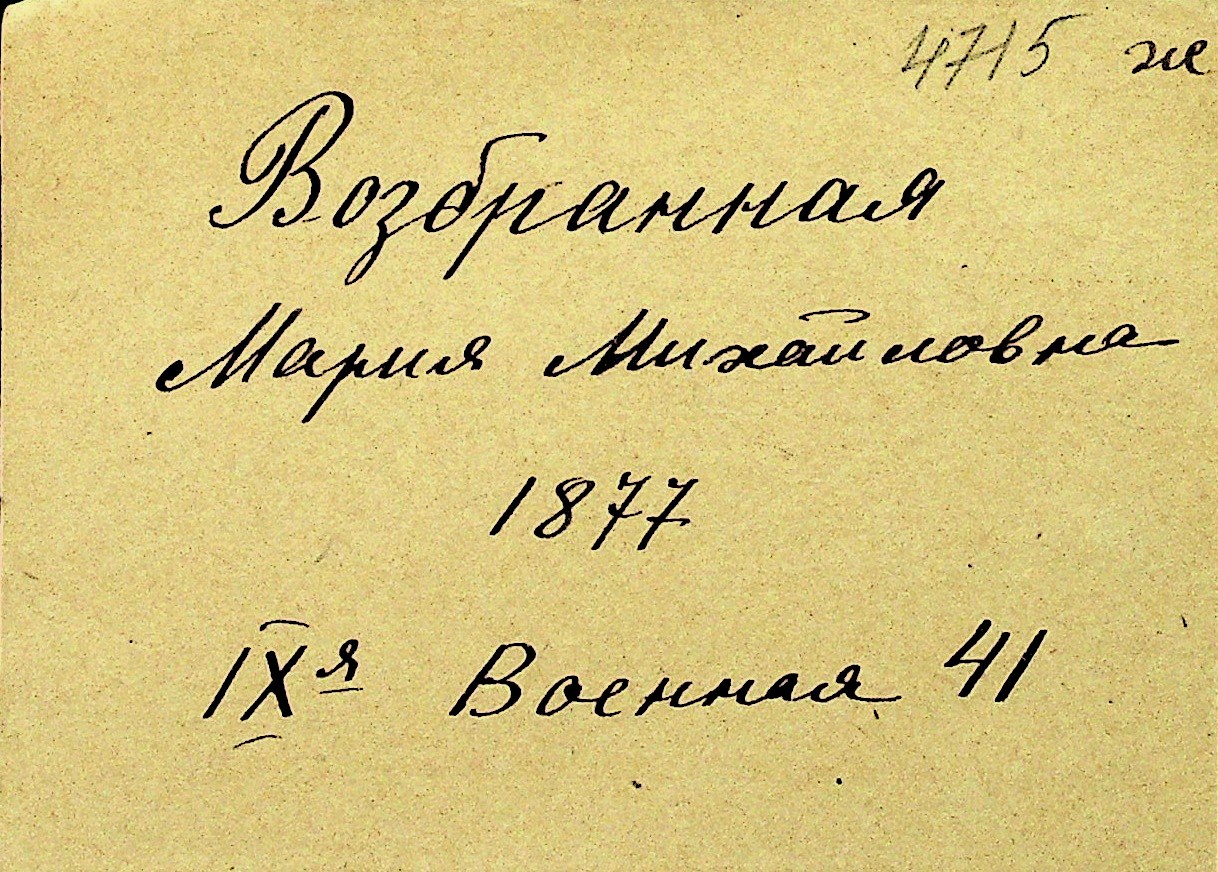 4715 ж
Возбранная
Мария Михайловна
1877
IXя Военная 41